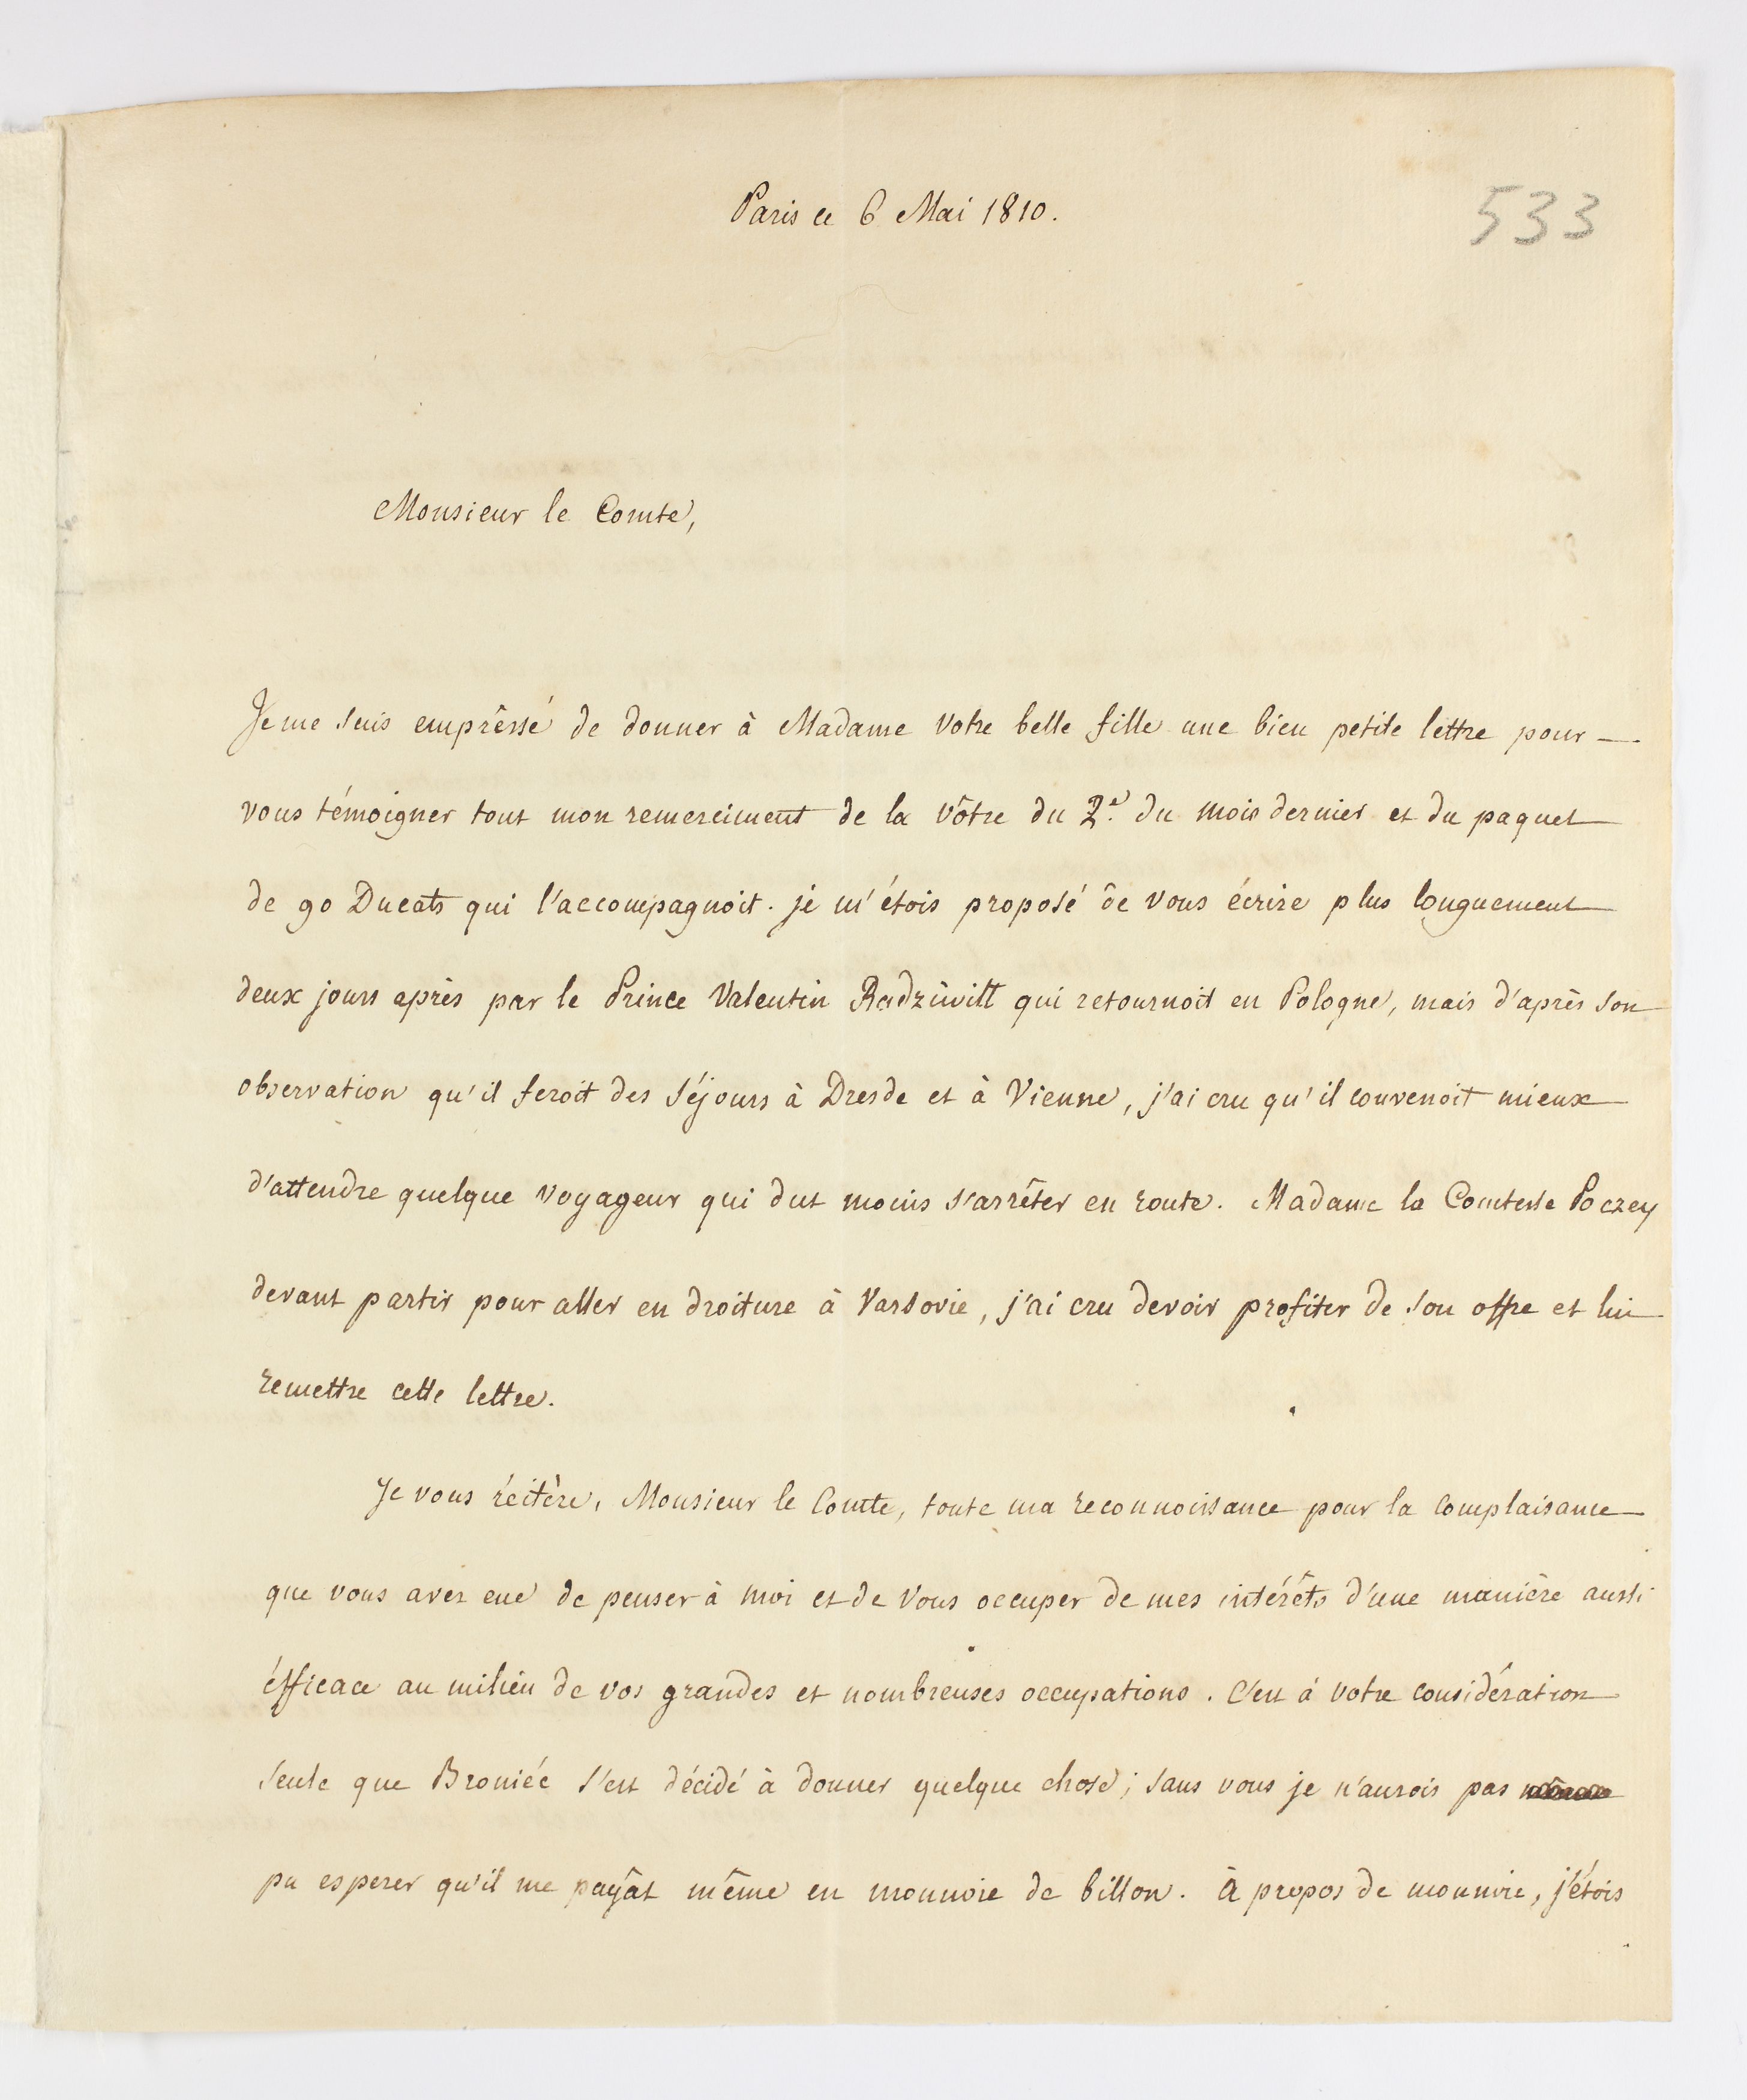 Paris ce 6 Mai 1810.
533
Monsieur le Comte,
Je me suis emprêssé de donner à Madame votre belle fille une bien petite lettre pour —
vous témoigner tout mon remerciment de la vôtre du 2.d du mois dernier et du paquet
de 90 Ducats qui l'accompagnoit. je m'étois proposé de vous écrire plus longuement
deux jours après par le Prince Valentin Radziwill qui retournoit en Pologne, mais d'après son
observation qu'il feroit des séjours à Dresde et à Vienne, j'ai cru qu'il convenoit mieux
d'attendre quelque voyageur qui dut moins s'arrêter en route. Madame la Comtesse Poczey
devant partir pour aller en droiture à Varsovie, j'ai cru devoir profiter de son offre et lui
remettre cette lettre.
Je vous réitère, Monsieur le Comte, toute ma reconnoissance pour la complaisance
que vous avez eue de penser à moi et de vous occuper de mes intérêts d'une manière aussi
éfficace au milieu de vos grandes et nombreuses occupations. C'est à votre considération
seule que Broniéc s'est décidé à donner quelque chose; sans vous je n'aurois pas
pu esperer qu'il me payât même en monnoie de billon. à propos de monnoie, j'étois